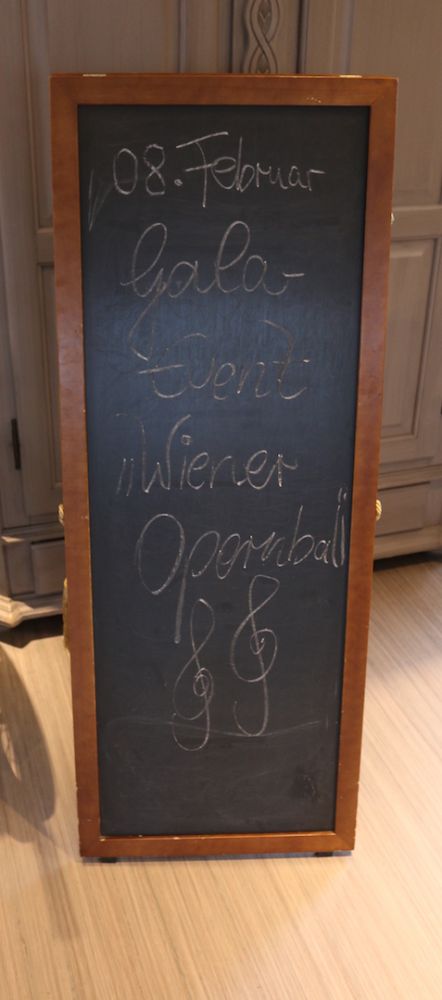 08. Februar
Gala-
Event
„Wiener
Opernball"